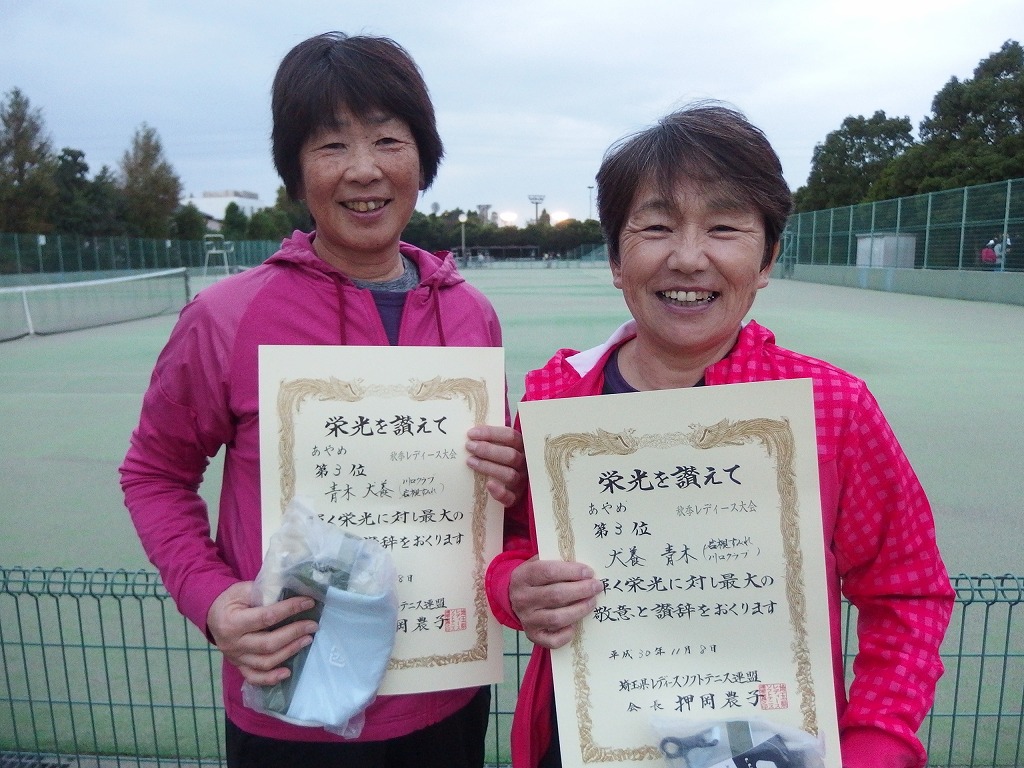 栄光を讃えて
あやめ 秋季レディース大会
第3位
青木 犬養 (川口クラブ
岩槻すみれ)
輝く栄光に対し最大の
讃辞をおくります
8日
トテニス連盟
岡農子
栄光を讃えて
あやめ 秋季レディース大会
第3位
犬養 青木 (岩槻すみれ
川口クラブ)
輝く栄光に対し最大の
敬意と讃辞をおくります
平成30年11月8日
埼玉県レディースソフトテニス連盟
会長 押岡農子